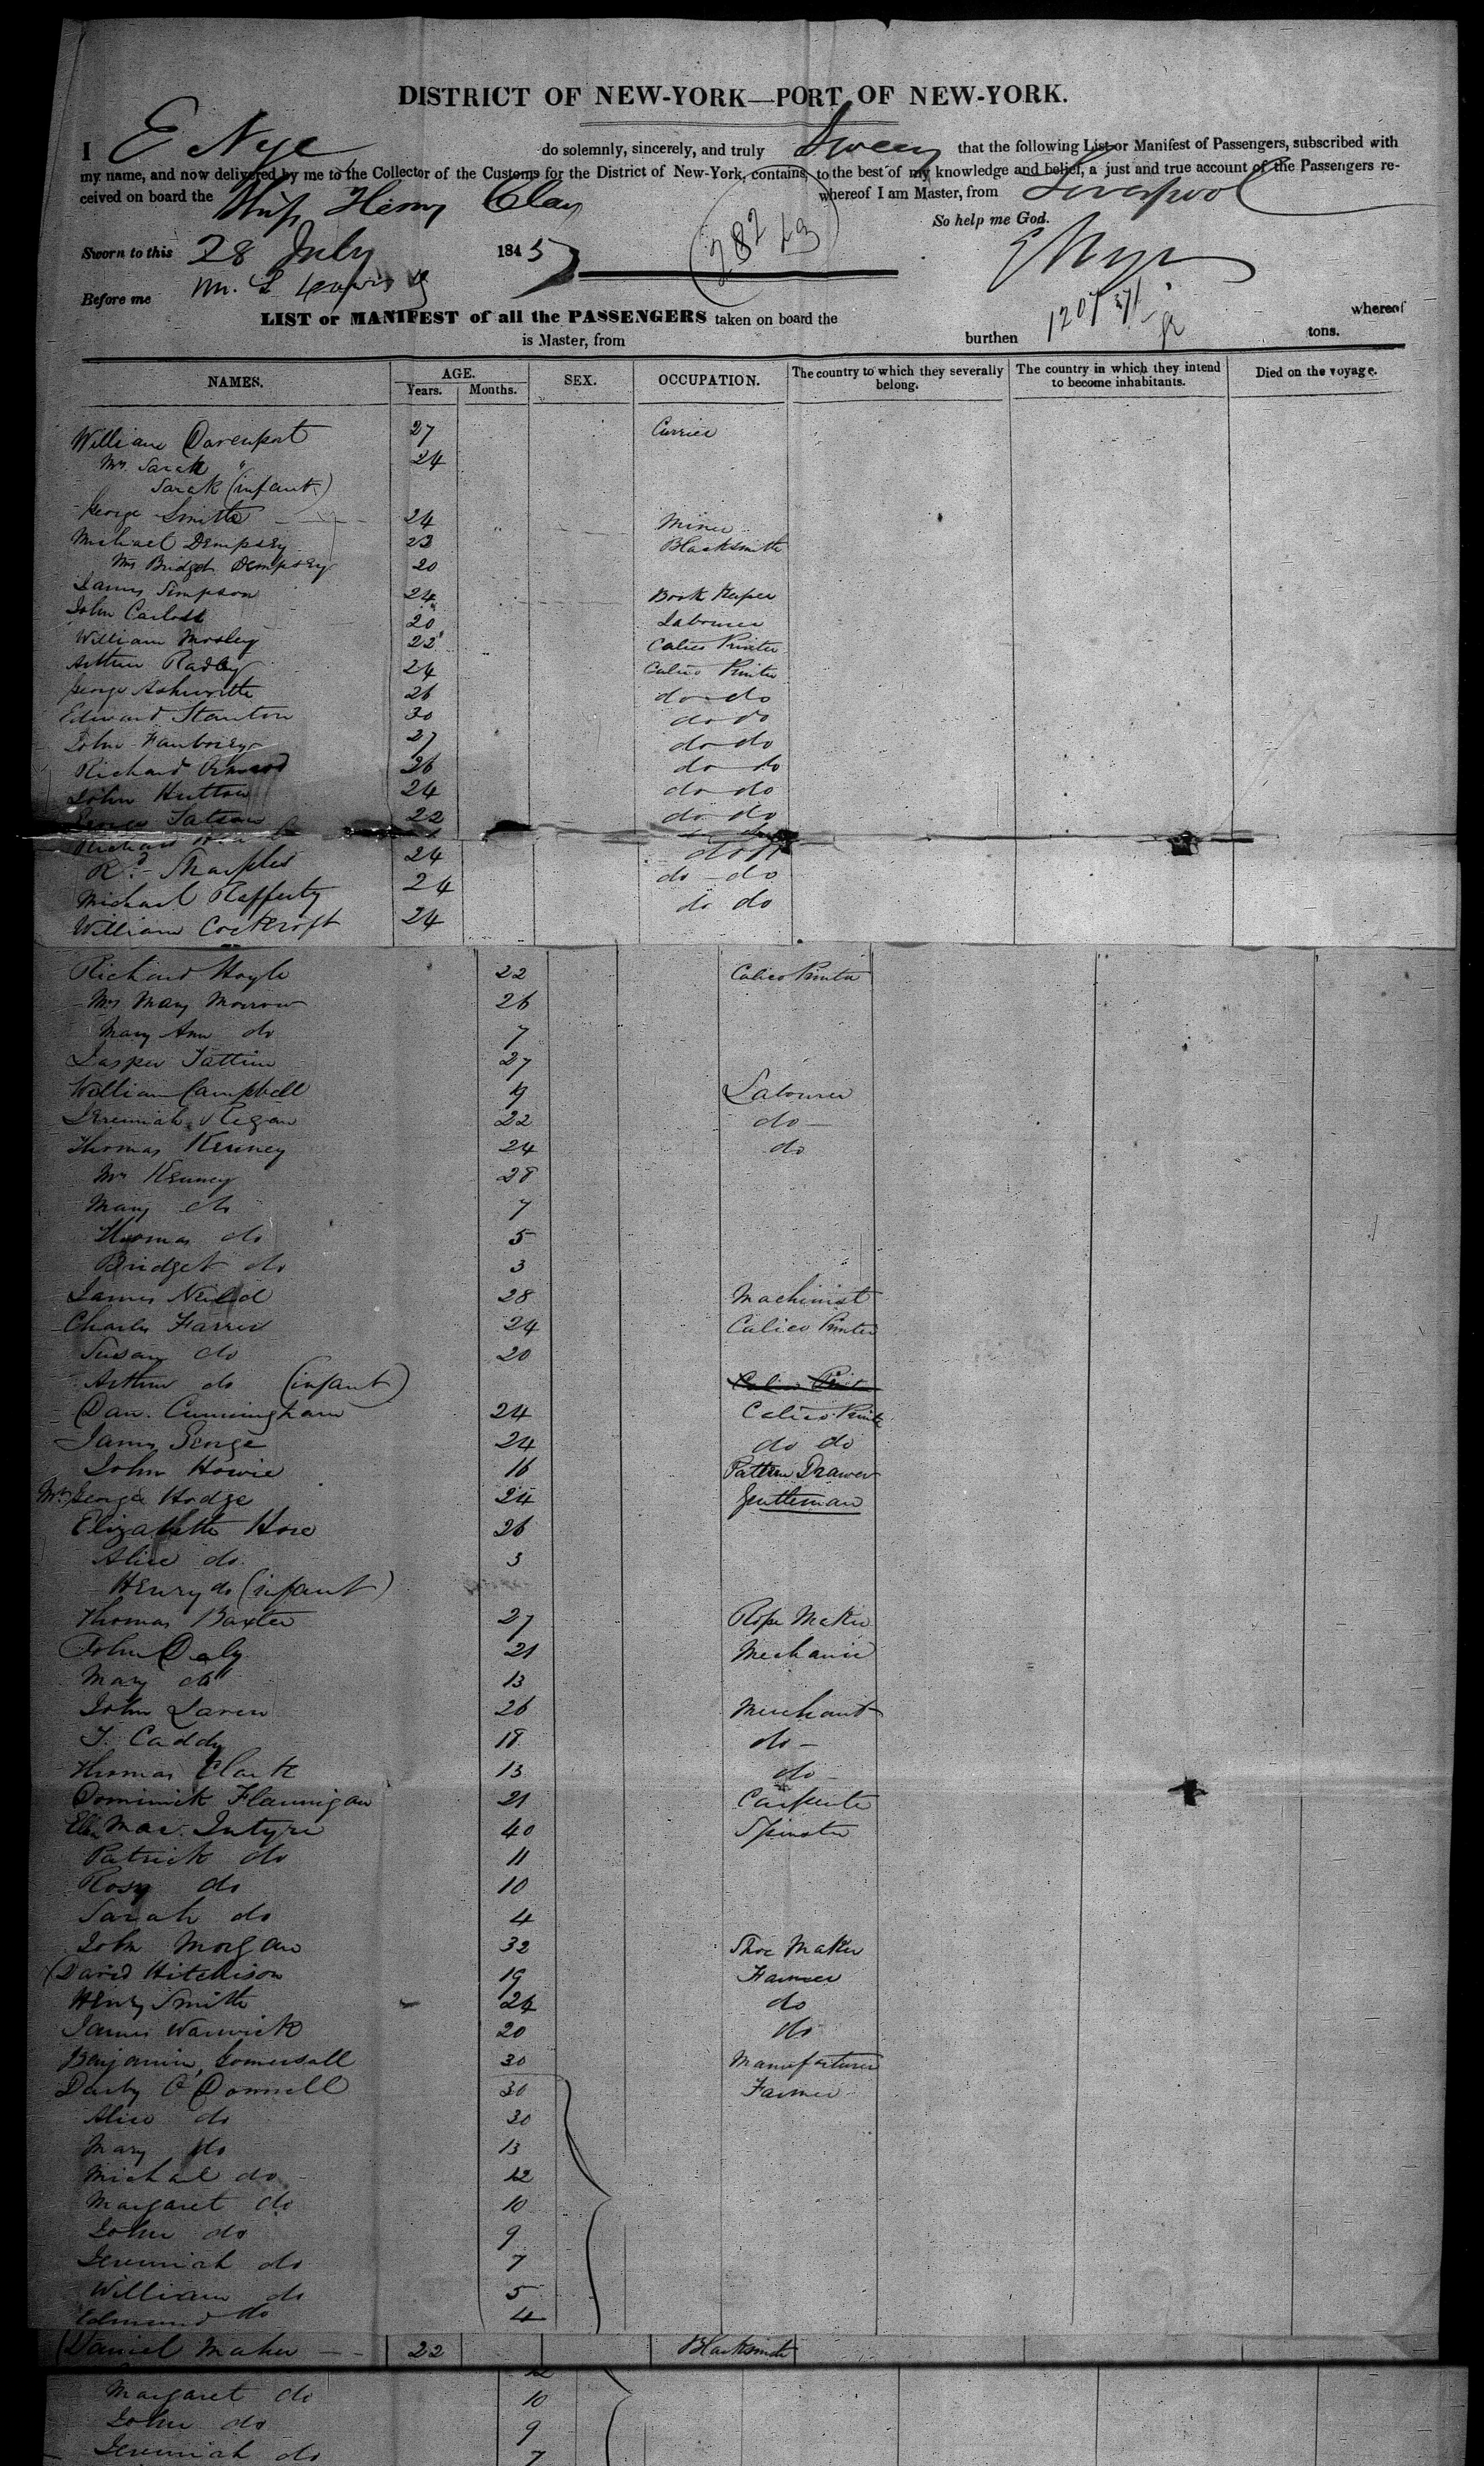 DISTRICT OF NEW-YORK—PORT OF NEW-YORK.
I E Nye do solemnly, sincerely, and truly Swear that the following List or Manifest of Passengers, subscribed with
my name, and now delivered by me to the Collector of the Customs for the District of New-York, contains, to the best of my knowledge and belief, a just and true account of the Passengers re-
ceived on board the Ship Henry Clay whereof I am Master, from Liverpool
So help me God.
Sworn to this 28 July 1845 E Nye
282
Before me
LIST or MANIFEST of all the PASSENGERS taken on board the whereof
is Master, from burthen 1207 tons.
NAMES. AGE. Years. Months. SEX. OCCUPATION. The country to which they severally belong. The country in which they intend to become inhabitants. Died on the voyage.
William Davenport 27 Currier
Mrs. Sarah " 24
Sarah (infant)
George Smith 24 Miner
Michael Dempsey 23 Blacksmith
Mrs Bridget Dempsey 20
James Simpson 24 Book Keeper
John 20 Labourer
William Mosley 22 Calico Printer
Arthur Radley 24 Calico Printer
George Ashworth 26 do do
Edward Stanton 30 do do
John 27 do do
Richard 26 do do
John Hutton 24 do do
George Tatson 22 do do
Richard
Rd. Sharples 24 do do
Michael Rafferty 24 do do
William Cockcroft 24 do do
Richard Hoyle 22 Calico Printer
Mrs Mary Morrow 26
Mary Ann do 7
Jasper Tattin 27
William Campbell 19 Labourer
Jeremiah Regan 22 do
Thomas Kenney 24 do
Mrs Kenney 28
Mary do 7
Thomas do 5
Bridget do 3
James Neild 28 Machinist
Charles Farrer 24 Calico Printer
Susan do 20
Arthur do (infant) Calico Printer
Dan. Cunningham 24 Calico Printer
James George 24 do do
John Howie 16 Pattern Drawer
Mr George Hodge 24 Gentleman
Elizabeth Hore 26
Alice do 3
Henry do (infant)
Thomas Baxter 27 Rope Maker
John Daly 21 Mechanic
Mary do 13
John Laren 26 Merchant
T. Caddy 18 do
Thomas Clark 13 do
Dominick Flannigan 21 Carpenter
Ellen Mac. Intyre 40 Spinster
Patrick do 11
Rosy do 10
Sarah do 4
John Morgan 32 Shoe Maker
David Hitchison 19 Farmer
Henry Smith 24 do
James Warwick 20 do
Benjamin Somersall 30 Manufacturer
Darby O'Donnell 30 Farmer
Alice do 30
Mary do 13
Michael do 12
Margaret do 10
John do 9
Jeremiah do 7
William do 5
Edmund do 4
Daniel Maher 22 Blacksmith
12
Margaret do 10
John do 9
Jeremiah do 7